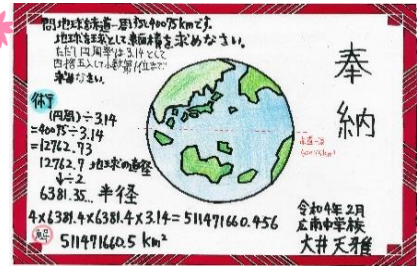 問 地球は赤道一周が40075kmです。
地球を球として表面積を求めなさい。
ただし円周率は3.14として
四捨五入して小数第1位まで
求めなさい。
奉納
術
(円周)÷3.14
=40075÷3.14
=12762.73
12762.7 地球の直径
↓÷2
6381.35… 半径
赤道一周
40075km
4×6381.4×6381.4×3.14=511471660.456
解 511471660.5 km²
令和4年2月
広南中学校
大井天雅